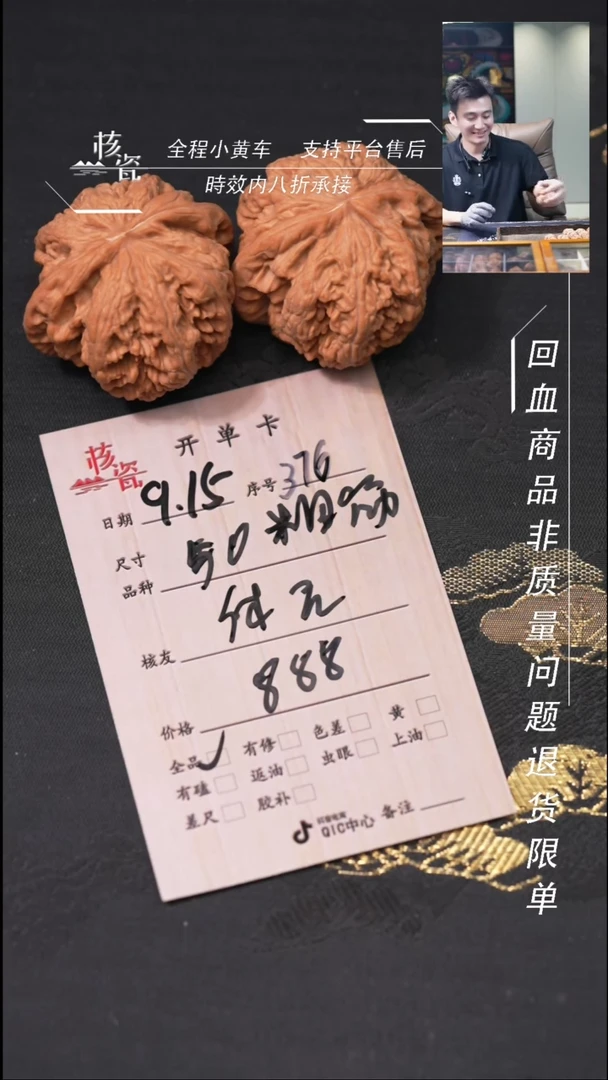 核瓷
全程小黄车 支持平台售后
時效内八折承接
回血商品非质量问题退货限单
核瓷
开单卡
日期 9.15 序号 376
尺寸
品种 50 粗筋
核友
价格 888
全品 有修 色差 黄
有磕 返油 虫眼 上油
差尺 胶补
抖音电商
QIC中心 备注